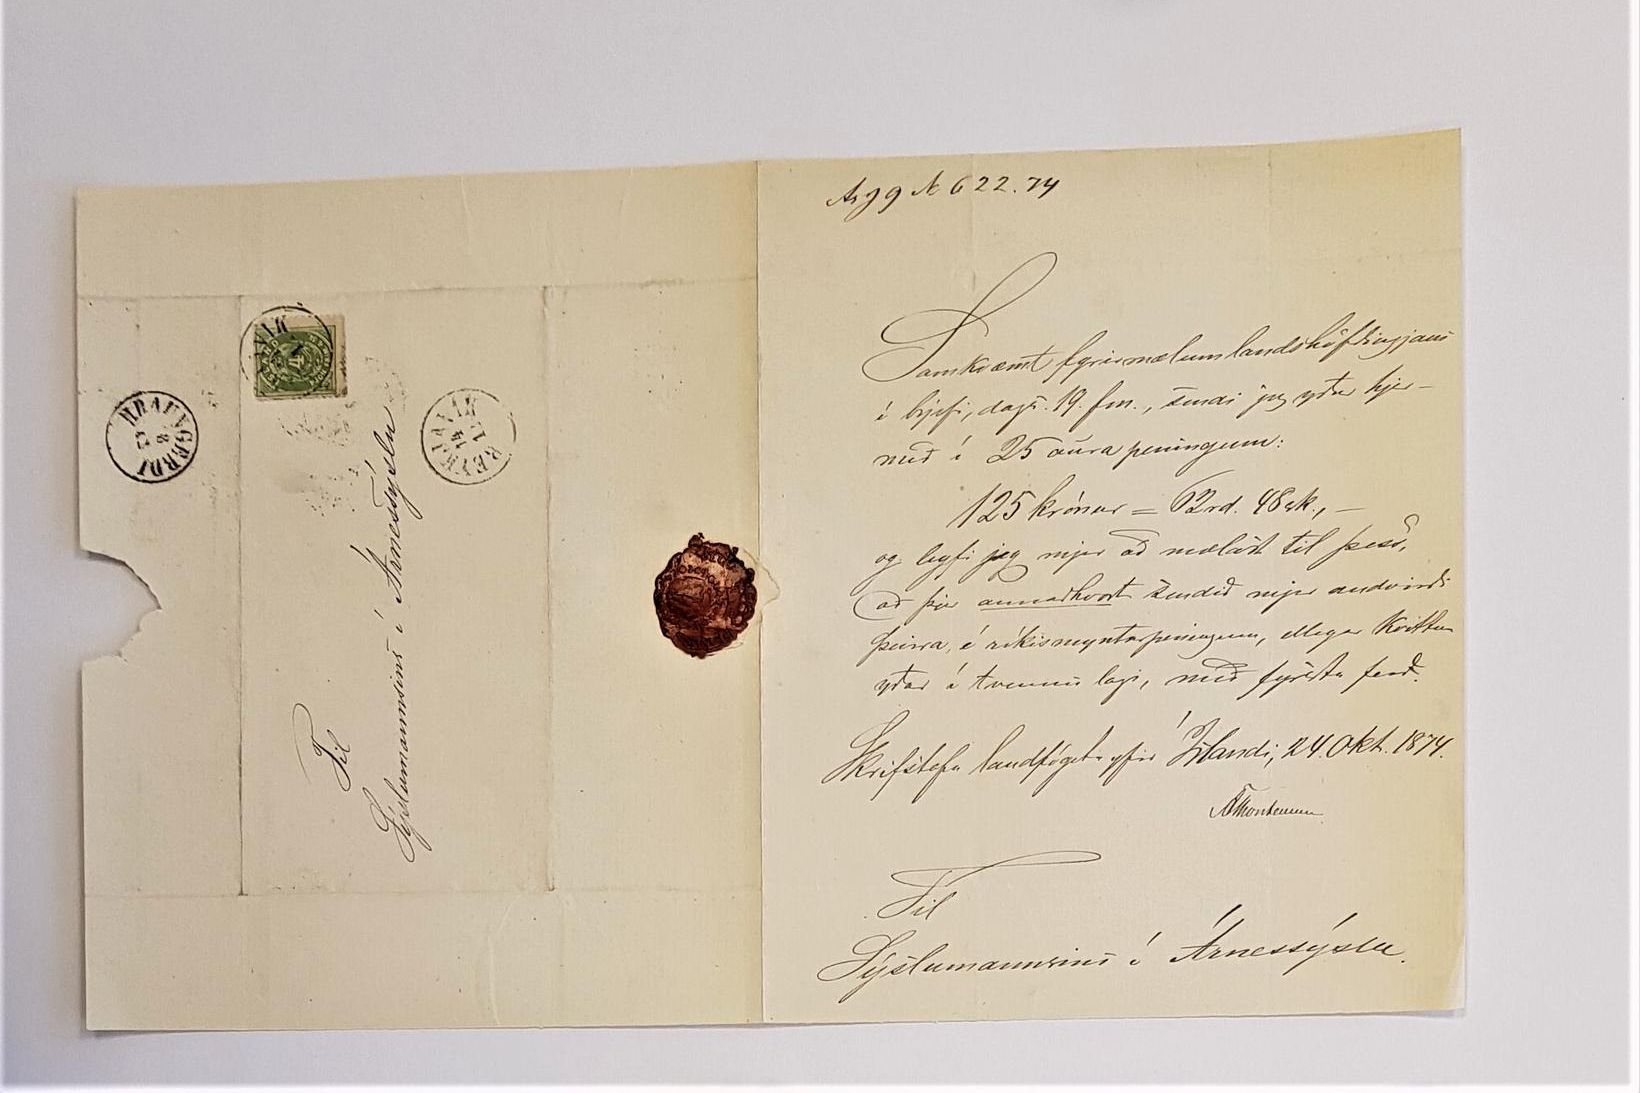 HRAUNGERDI
8
12
REYKJAVIK
14
11
Til
Sýslumannsins í Árnessýslu
No 622.74
Samkvæmt fyrirmælum landshöfðingjans
í brjefi, dags. 19. f.m., sendi jeg yður hjer-
með í 25 aura peningum:
125 krónur = 62rd. 48sk., —
og leyfi jeg mjer að mælast til þess,
að þjer annaðhvort sendið mjer andvirði
þeirra, í ríkismyntarpeningum, ellegar kvittun
yðar í tvennu lagi, með fyrstu ferð.
Skrifstofu landfógeta yfir Íslandi, 24. Okt. 1874.
ÁThorsteinson
Til
Sýslumannsins í Árnessýslu.